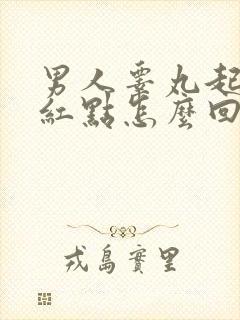 男人睾丸起
紅點怎麼回
戎島實里